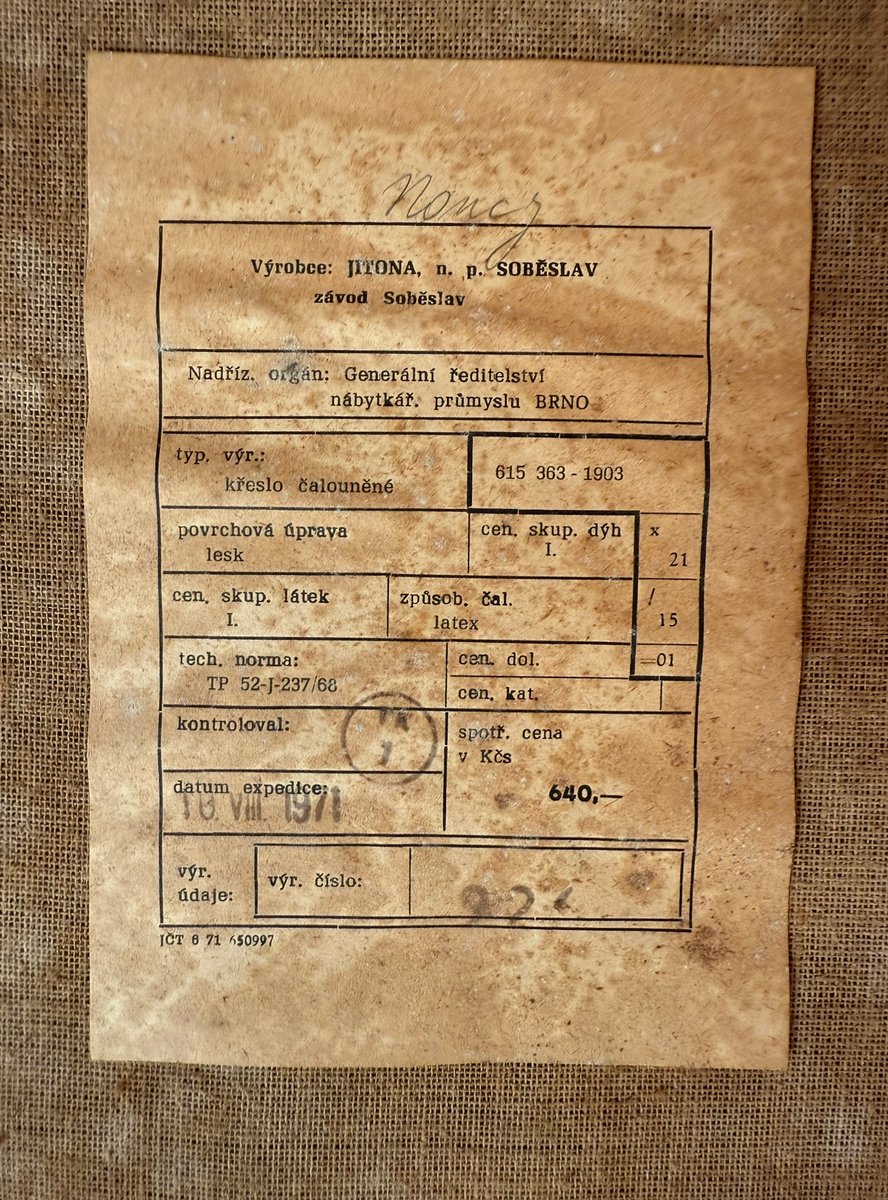 Výrobce: JITONA, n. p. SOBĚSLAV
závod Soběslav
Nadříz. orgán: Generální ředitelství
nábytkář. průmyslu BRNO
typ. výr.:
křeslo čalouněné
615 363-1903
povrchová úprava
lesk
cen. skup. dýh
I.
x
21
cen. skup. látek
I.
způsob. čal.
latex
/
15
tech. norma:
TP 52-J-237/68
cen. dol.
=01
cen. kat.
kontroloval:
spotř. cena
v Kčs
datum expedice:
VIII. 1971
640,—
výr.
údaje:
výr. číslo:
JČT 8 71 650997